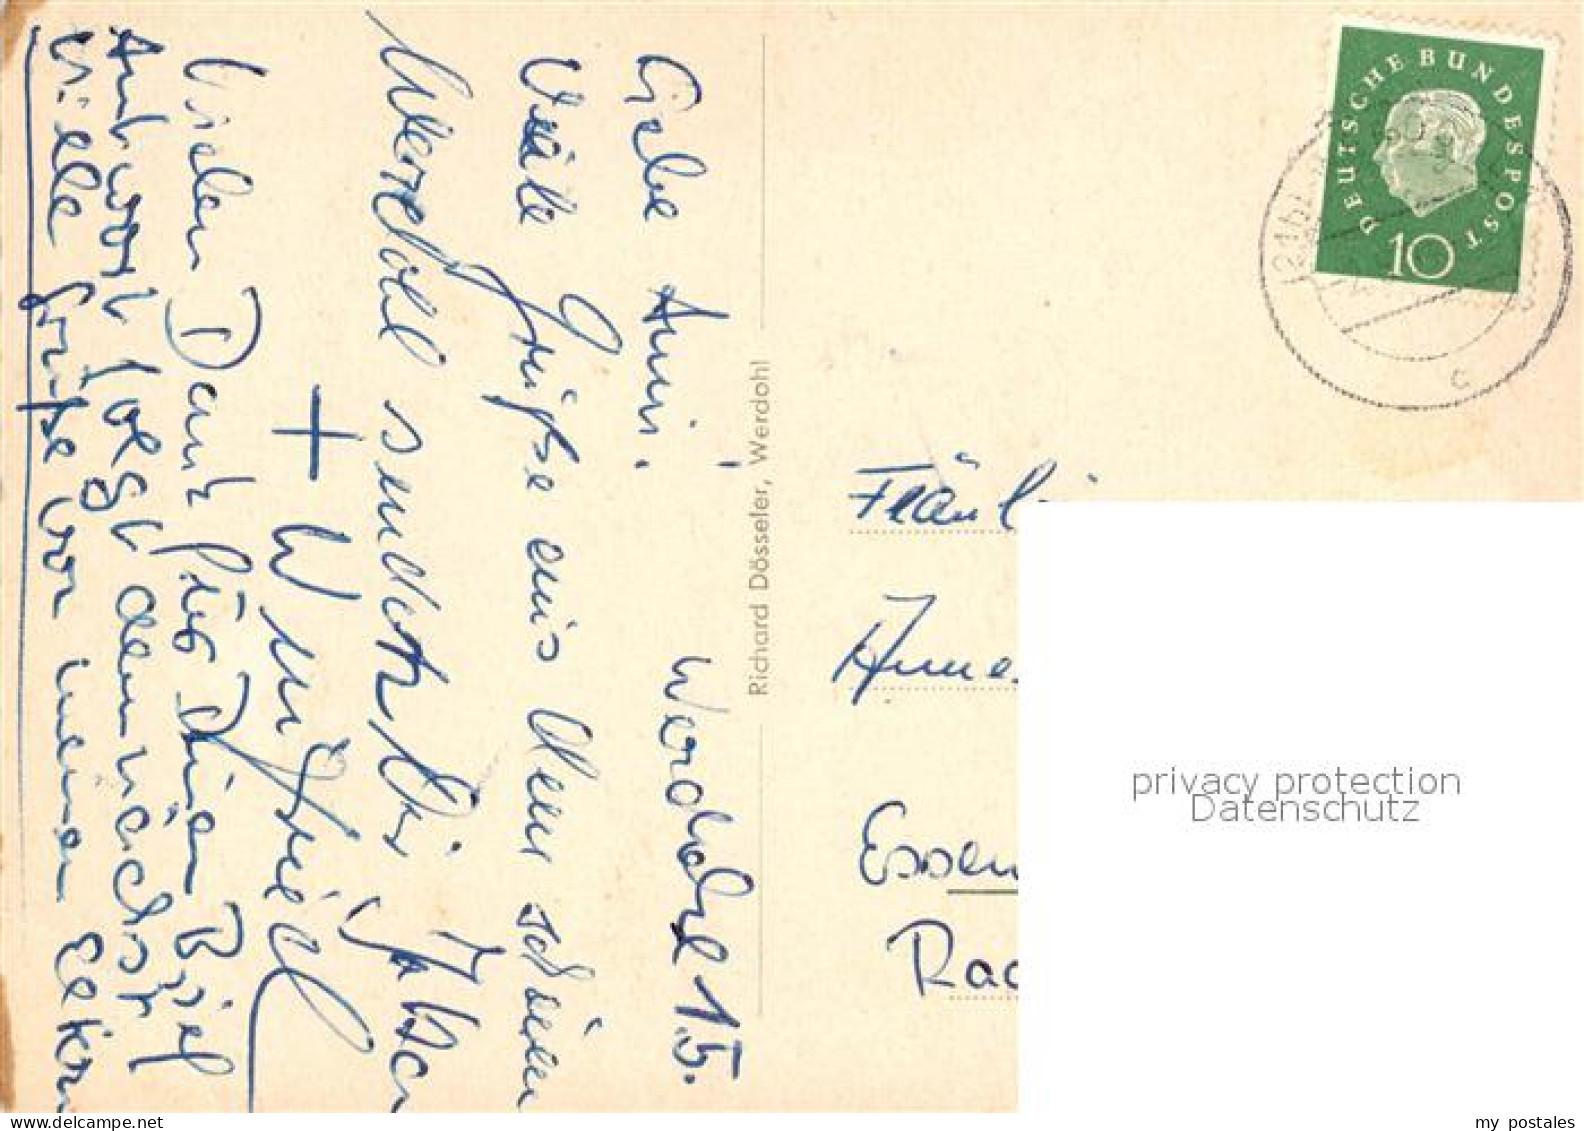 Werdohl 15.
Liebe Anni!
Viele Grüße aus dem schönen
Werdohl sendet Dir
+ Winfried
Vielen Dank für Deinen Brief
Antwort folgt demnächst
viele Grüße von meinen Eltern
Richard Dösseler, Werdohl
DEUTSCHE BUNDESPOST
10
c
Fräul
Anne
Essen
Rad
privacy protection
Datenschutz
my postales